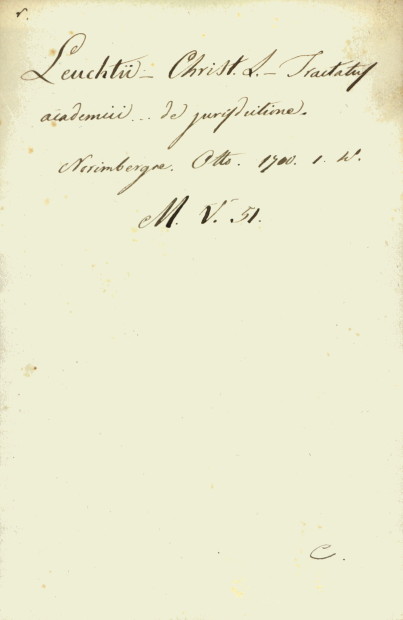 Leuchtii – Christ. L. – Tractatus
academici... de jurisdictione.
Norimbergae. Otto. 1700. 1. W.
M. V. 51.
C.